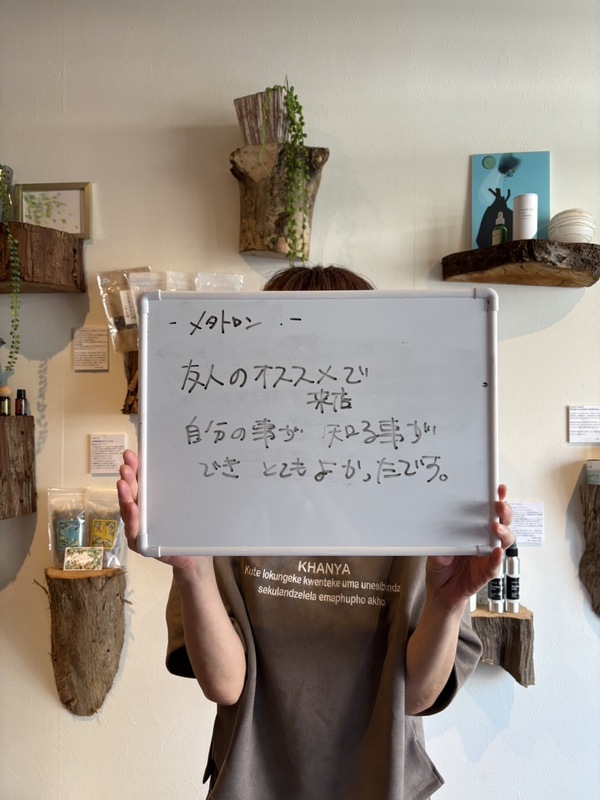 - メタトロン . -
友人のオススメで
来店
自分の事が 知る事が
でき とてもよかったです。
KHANYA
Kute lokungeke kwenteke uma unesibindz
sekulandzelela emaphupho akho